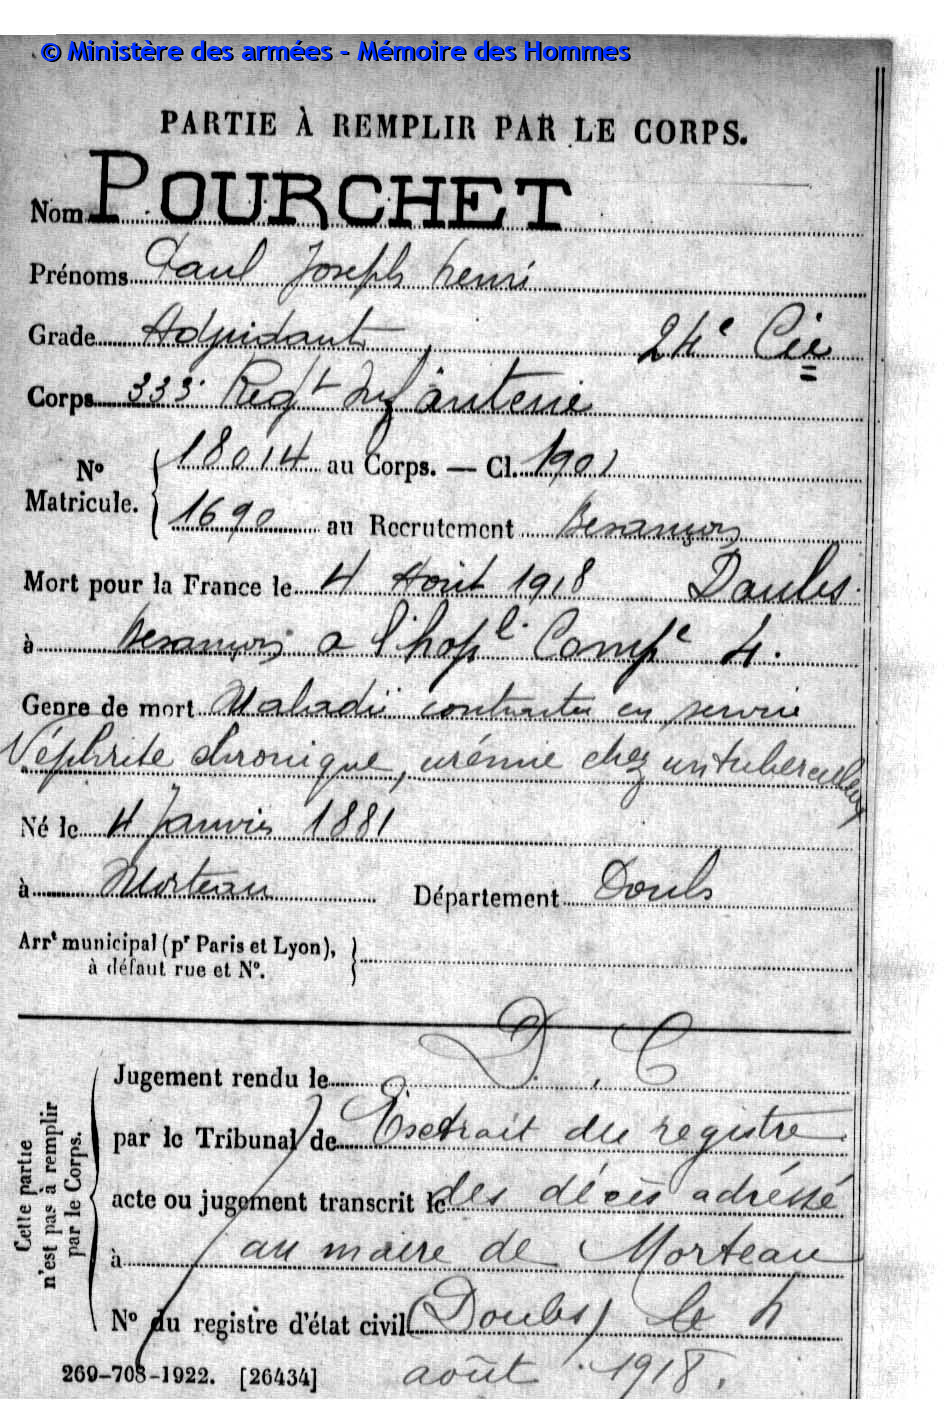 © Ministère des armées - Mémoire des Hommes
PARTIE À REMPLIR PAR LE CORPS.
Nom POURCHET
Prénoms Paul Joseph henri
Grade Adjudant 24e Cie
Corps 333e Regt Infanterie
No Matricule. 18014 au Corps. — Cl. 1901
1690 au Recrutement Besançon
Mort pour la France le 4 Août 1918 Doubs
à Besançon a l'hopl Compe 4.
Genre de mort Maladie contractée en service
Néphrite chronique, urémie chez un tuberculeux
Né le 4 Janvier 1881
à Morteau Département Doubs
Arrt municipal (pr Paris et Lyon),
à défaut rue et No.
D. C
Jugement rendu le
par le Tribunal de Extrait du registre
acte ou jugement transcrit le des décès adréssé
à au maire de Morteau
No du registre d'état civil (Doubs) le 4
août 1918.
Cette partie
n'est pas à remplir
par le Corps.
269-708-1922. [26434]